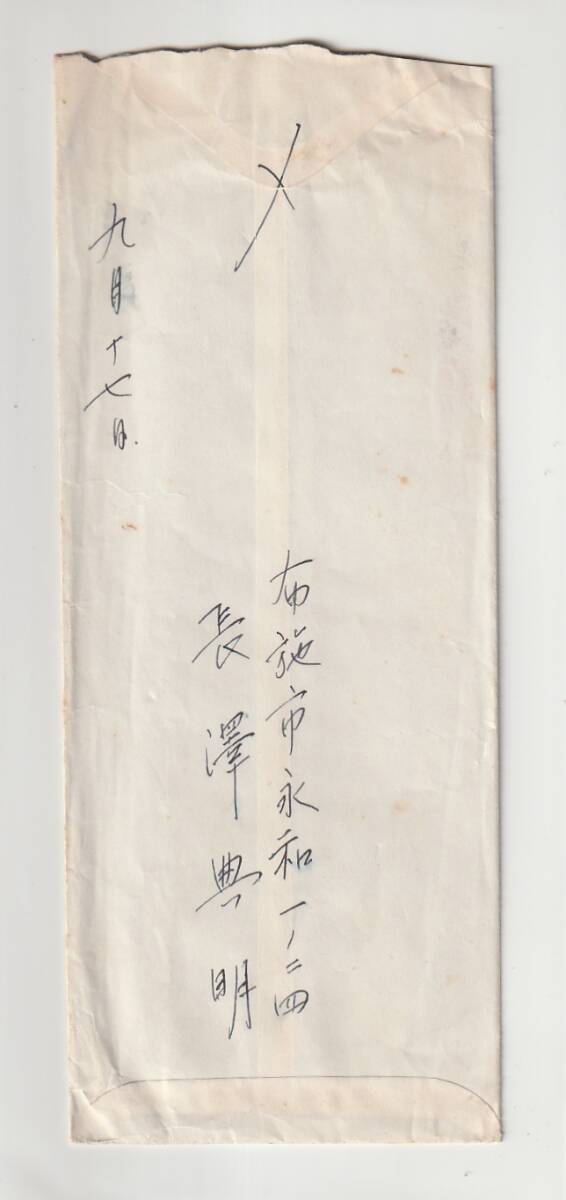 〆
布施市永和一ノ二四
長澤典明
九月十七日